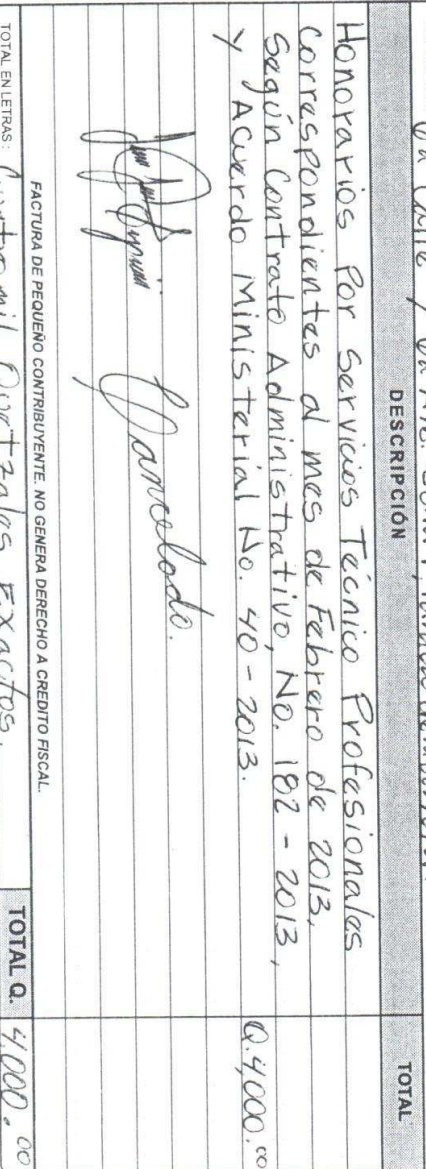 6a Calle y 6a Ave. Zona 1,
DESCRIPCIÓN TOTAL
Honorarios Por Servicios Técnico Profesionales
Correspondientes al mes de Febrero de 2013,
Según Contrato Administrativo, No. 182 - 2013,
y Acuerdo Ministerial No. 40 - 2013. Q.4,000.00
Cancelado.
FACTURA DE PEQUEÑO CONTRIBUYENTE. NO GENERA DERECHO A CREDITO FISCAL.
TOTAL EN LETRAS: Cuatro mil Quetzales Exactos. TOTAL Q. 4,000.00